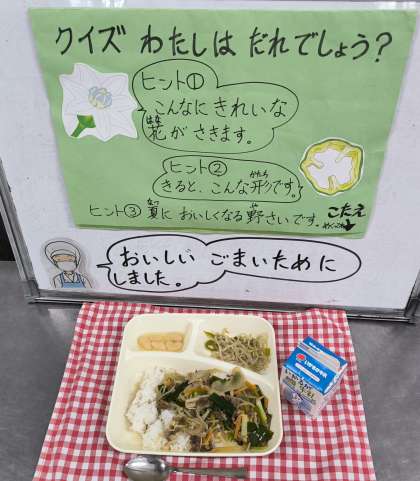 クイズ わたしは だれでしょう？
ヒント①
こんなに きれいな
花が さきます。
はな
ヒント②
きると、こんな形です。
かたち
ヒント③ 夏に おいしくなる 野さいです。
なつ
や
こたえ
おいしい ごまいために
しました。